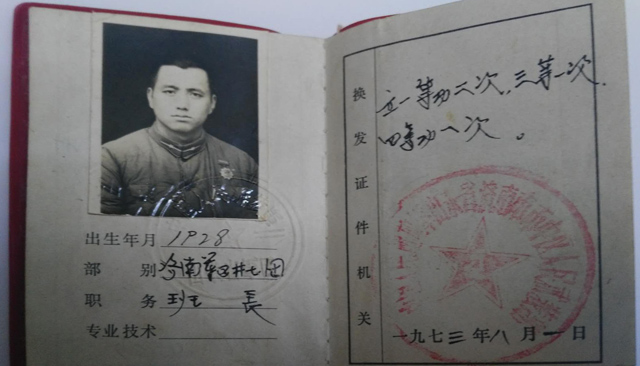 出生年月 1928
部别 济南军区廿七团
职务 班长
专业技术
立一等功二次,三等一次,
四等功一次。
换发证件机关
一九七三年八月一日